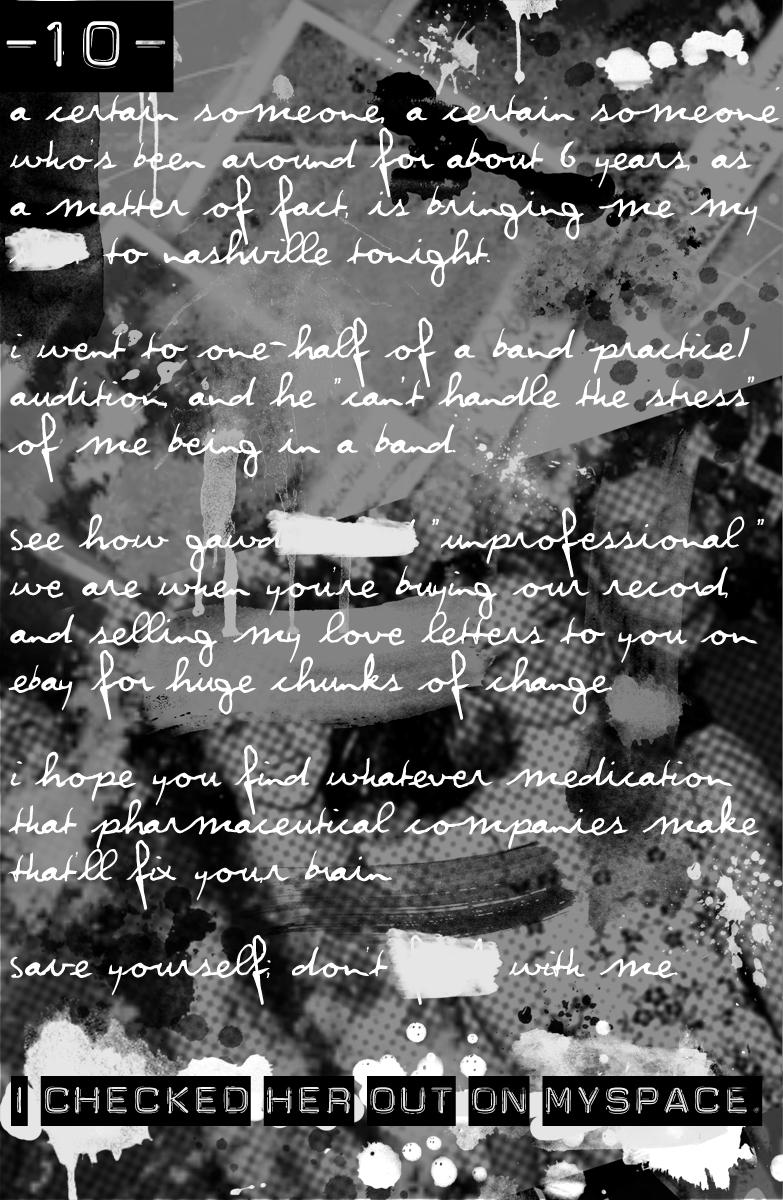 -10-
a certain someone, a certain someone
who's been around for about 6 years, as
a matter of fact, is bringing me my
to nashville tonight.
i went to one-half of a band practice/
audition, and he "can't handle the stress"
of me being in a band.
see how gawd "unprofessional"
we are when you're buying our record,
and selling my love letters to you on
ebay for huge chunks of change.
i hope you find whatever medication
that pharmaceutical companies make
that'll fix your brain.
save yourself; don't with me.
I CHECKED HER OUT ON MYSPACE.